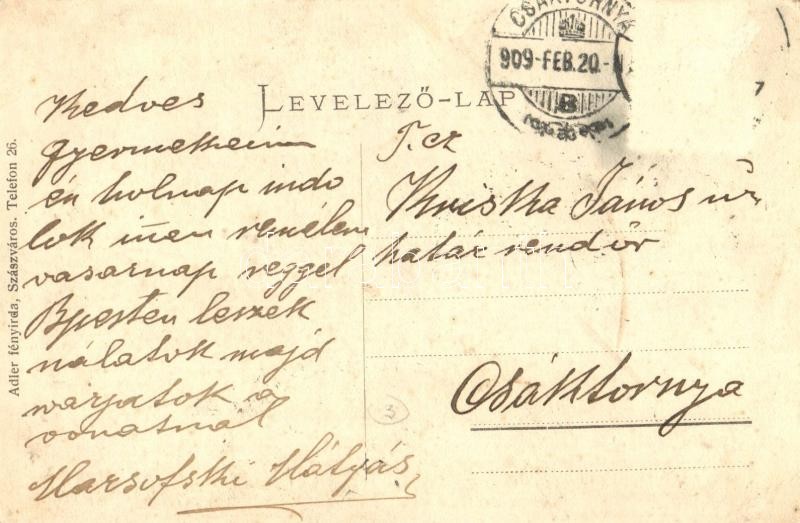 CSÁKTORNYA
909-FEB.20.
B
LEVELEZŐ-LAP
Kedves
gyermekeim
én holnap indo
lok innen remélem
vasarnap reggel
Bpesten leszek
nálatok majd
varjatok a
vonatnál
Marsofszki Mátyás
T. cz
Kriska János úr
határ rendőr
Csáktornya
5
Adler fényirda, Szászváros. Telefon 26.